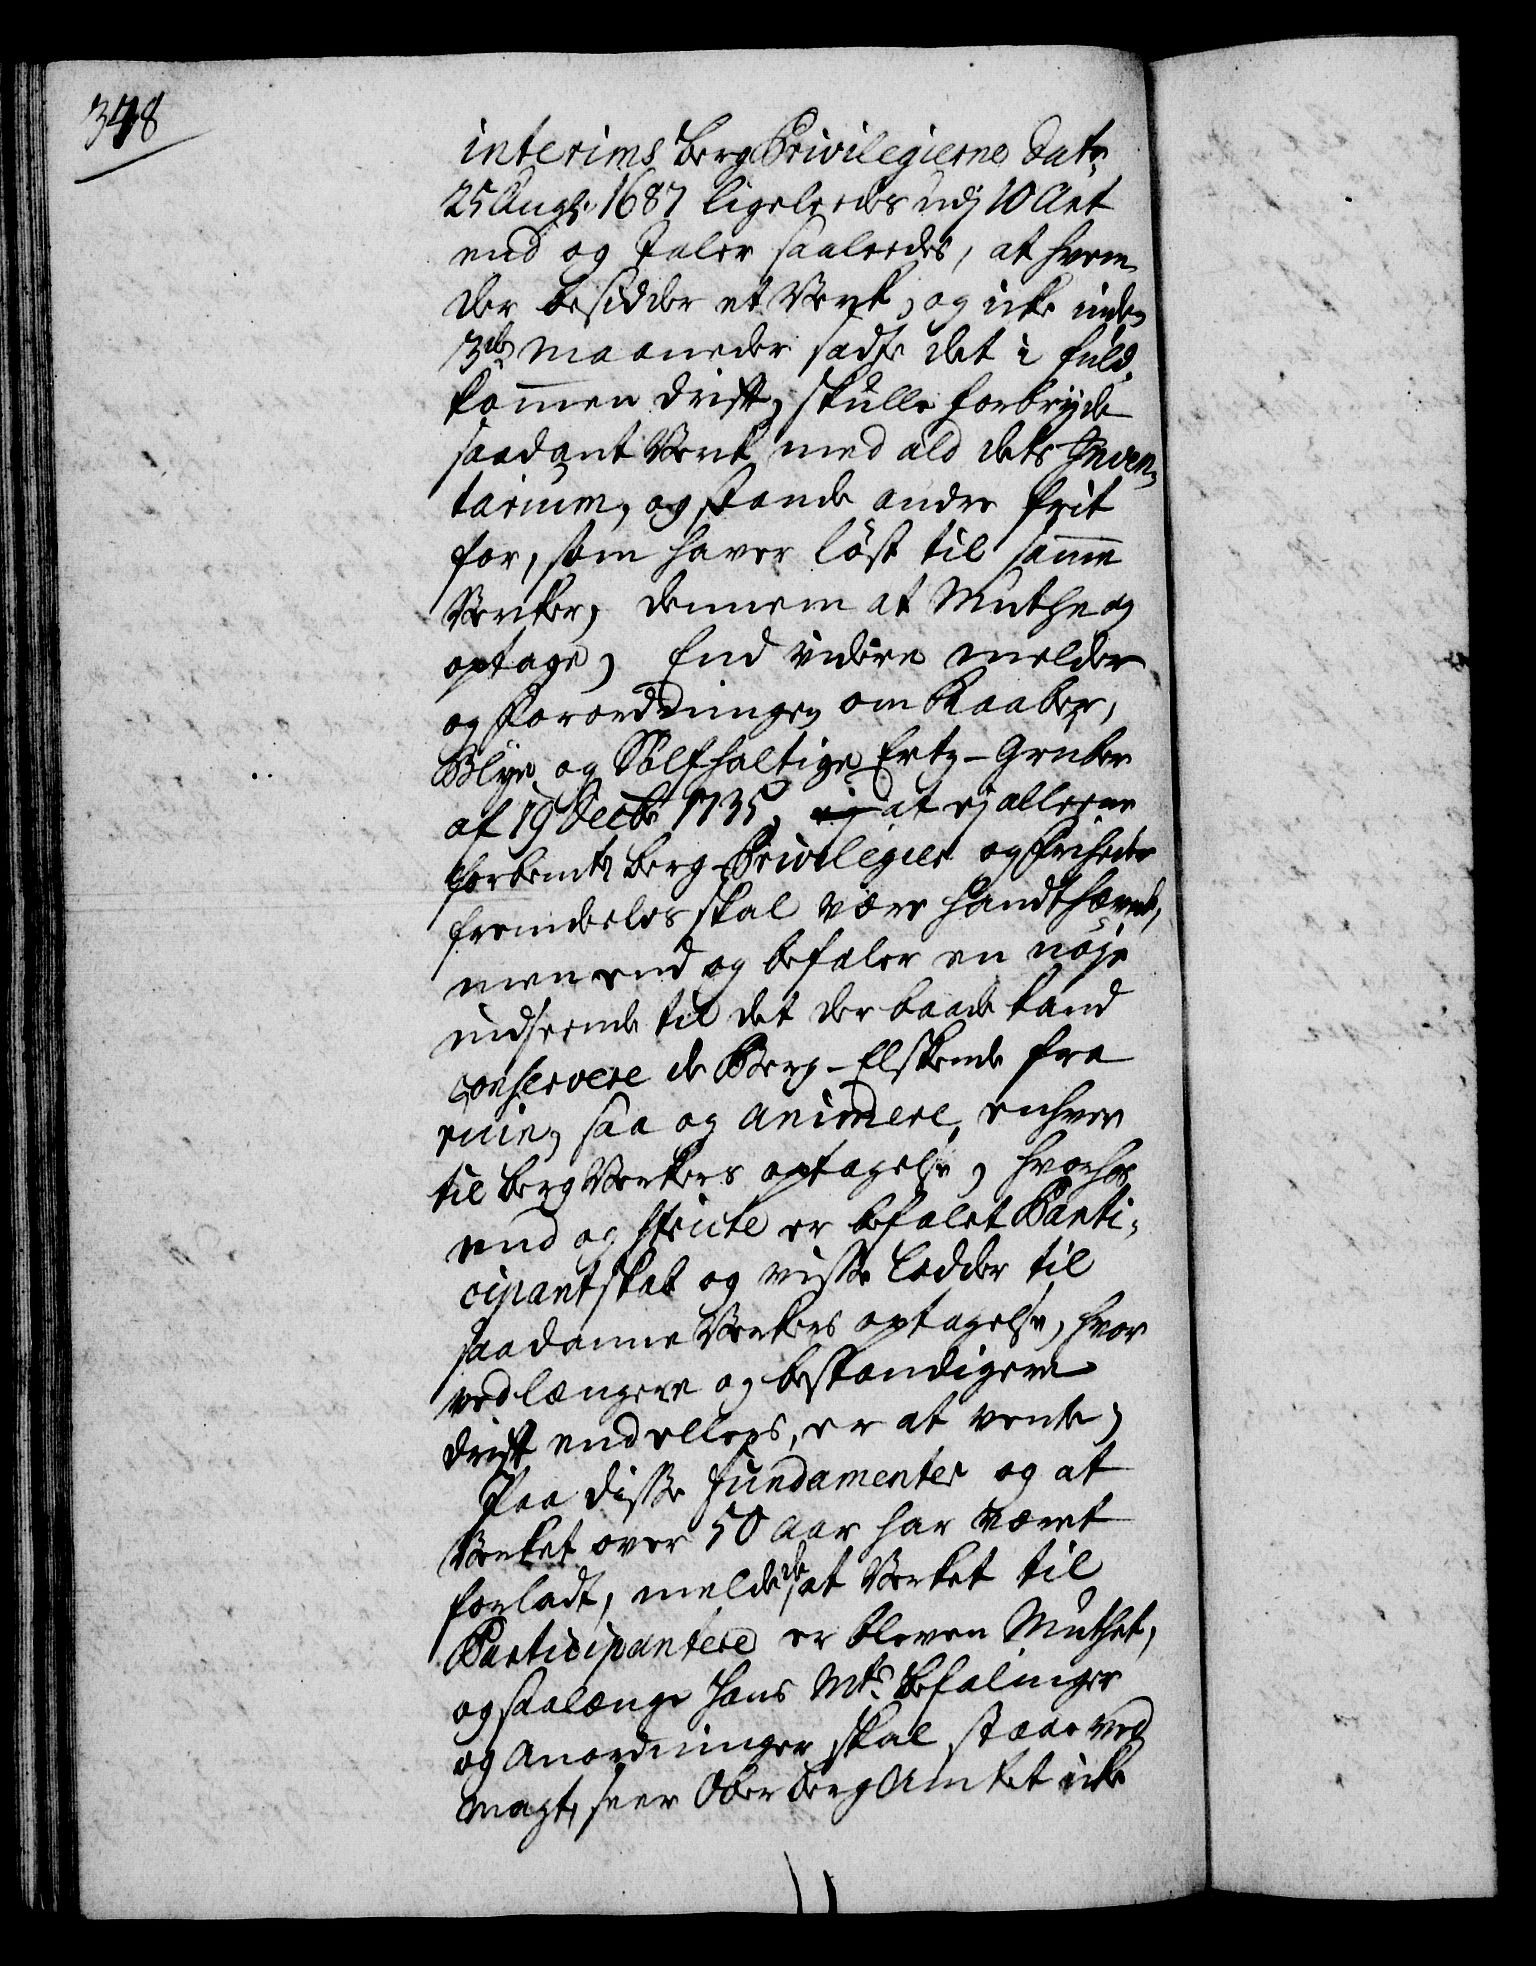 348
interims Berg Privilegierne dat:
25 Aug: 1687 ligeleedes udj 10 Art
end og taler saaleedes, at hvem
der besidder et Verk, og icke inden
3de Maaneder sadte det i fuld-
kommen drift, skulle forbryde
saadant Verk med ald dets Inven-
tarium, og stande andre frit
for, som haver löst til samme
Verker, dennem at Muthe og
optage, End videre melder
og Forordningen om Kaaber,
Blye og Sölfholtige Ertz-Gruber
af 19 Decbr 1735, at ej alleene
forbemte Berg-Privilegier og friheder
fremdeeles skal være handthævet,
men end og befaler en nöje
indseende til det der baade kand
conservere de Berg-Elskende fra
ruin, saa og animere enhver
til Berg Verkers optagelse, hvorhos
end og stricte er befalet Parti-
cipantskab og visse Lodder til
saadanne Verkers optagelse, hvor
ved længere og bestandigere
drift end ellers, er at vente,
Paa disse Fundamenter og at
Verket over 50 Aar har været
forladt, meldede at Verket til
Participantere er bleven Muthet,
og saalænge Hans Mts. Befalinger
og Anordninger skal staae ved
Magt, seer Ober Berg Amtet icke